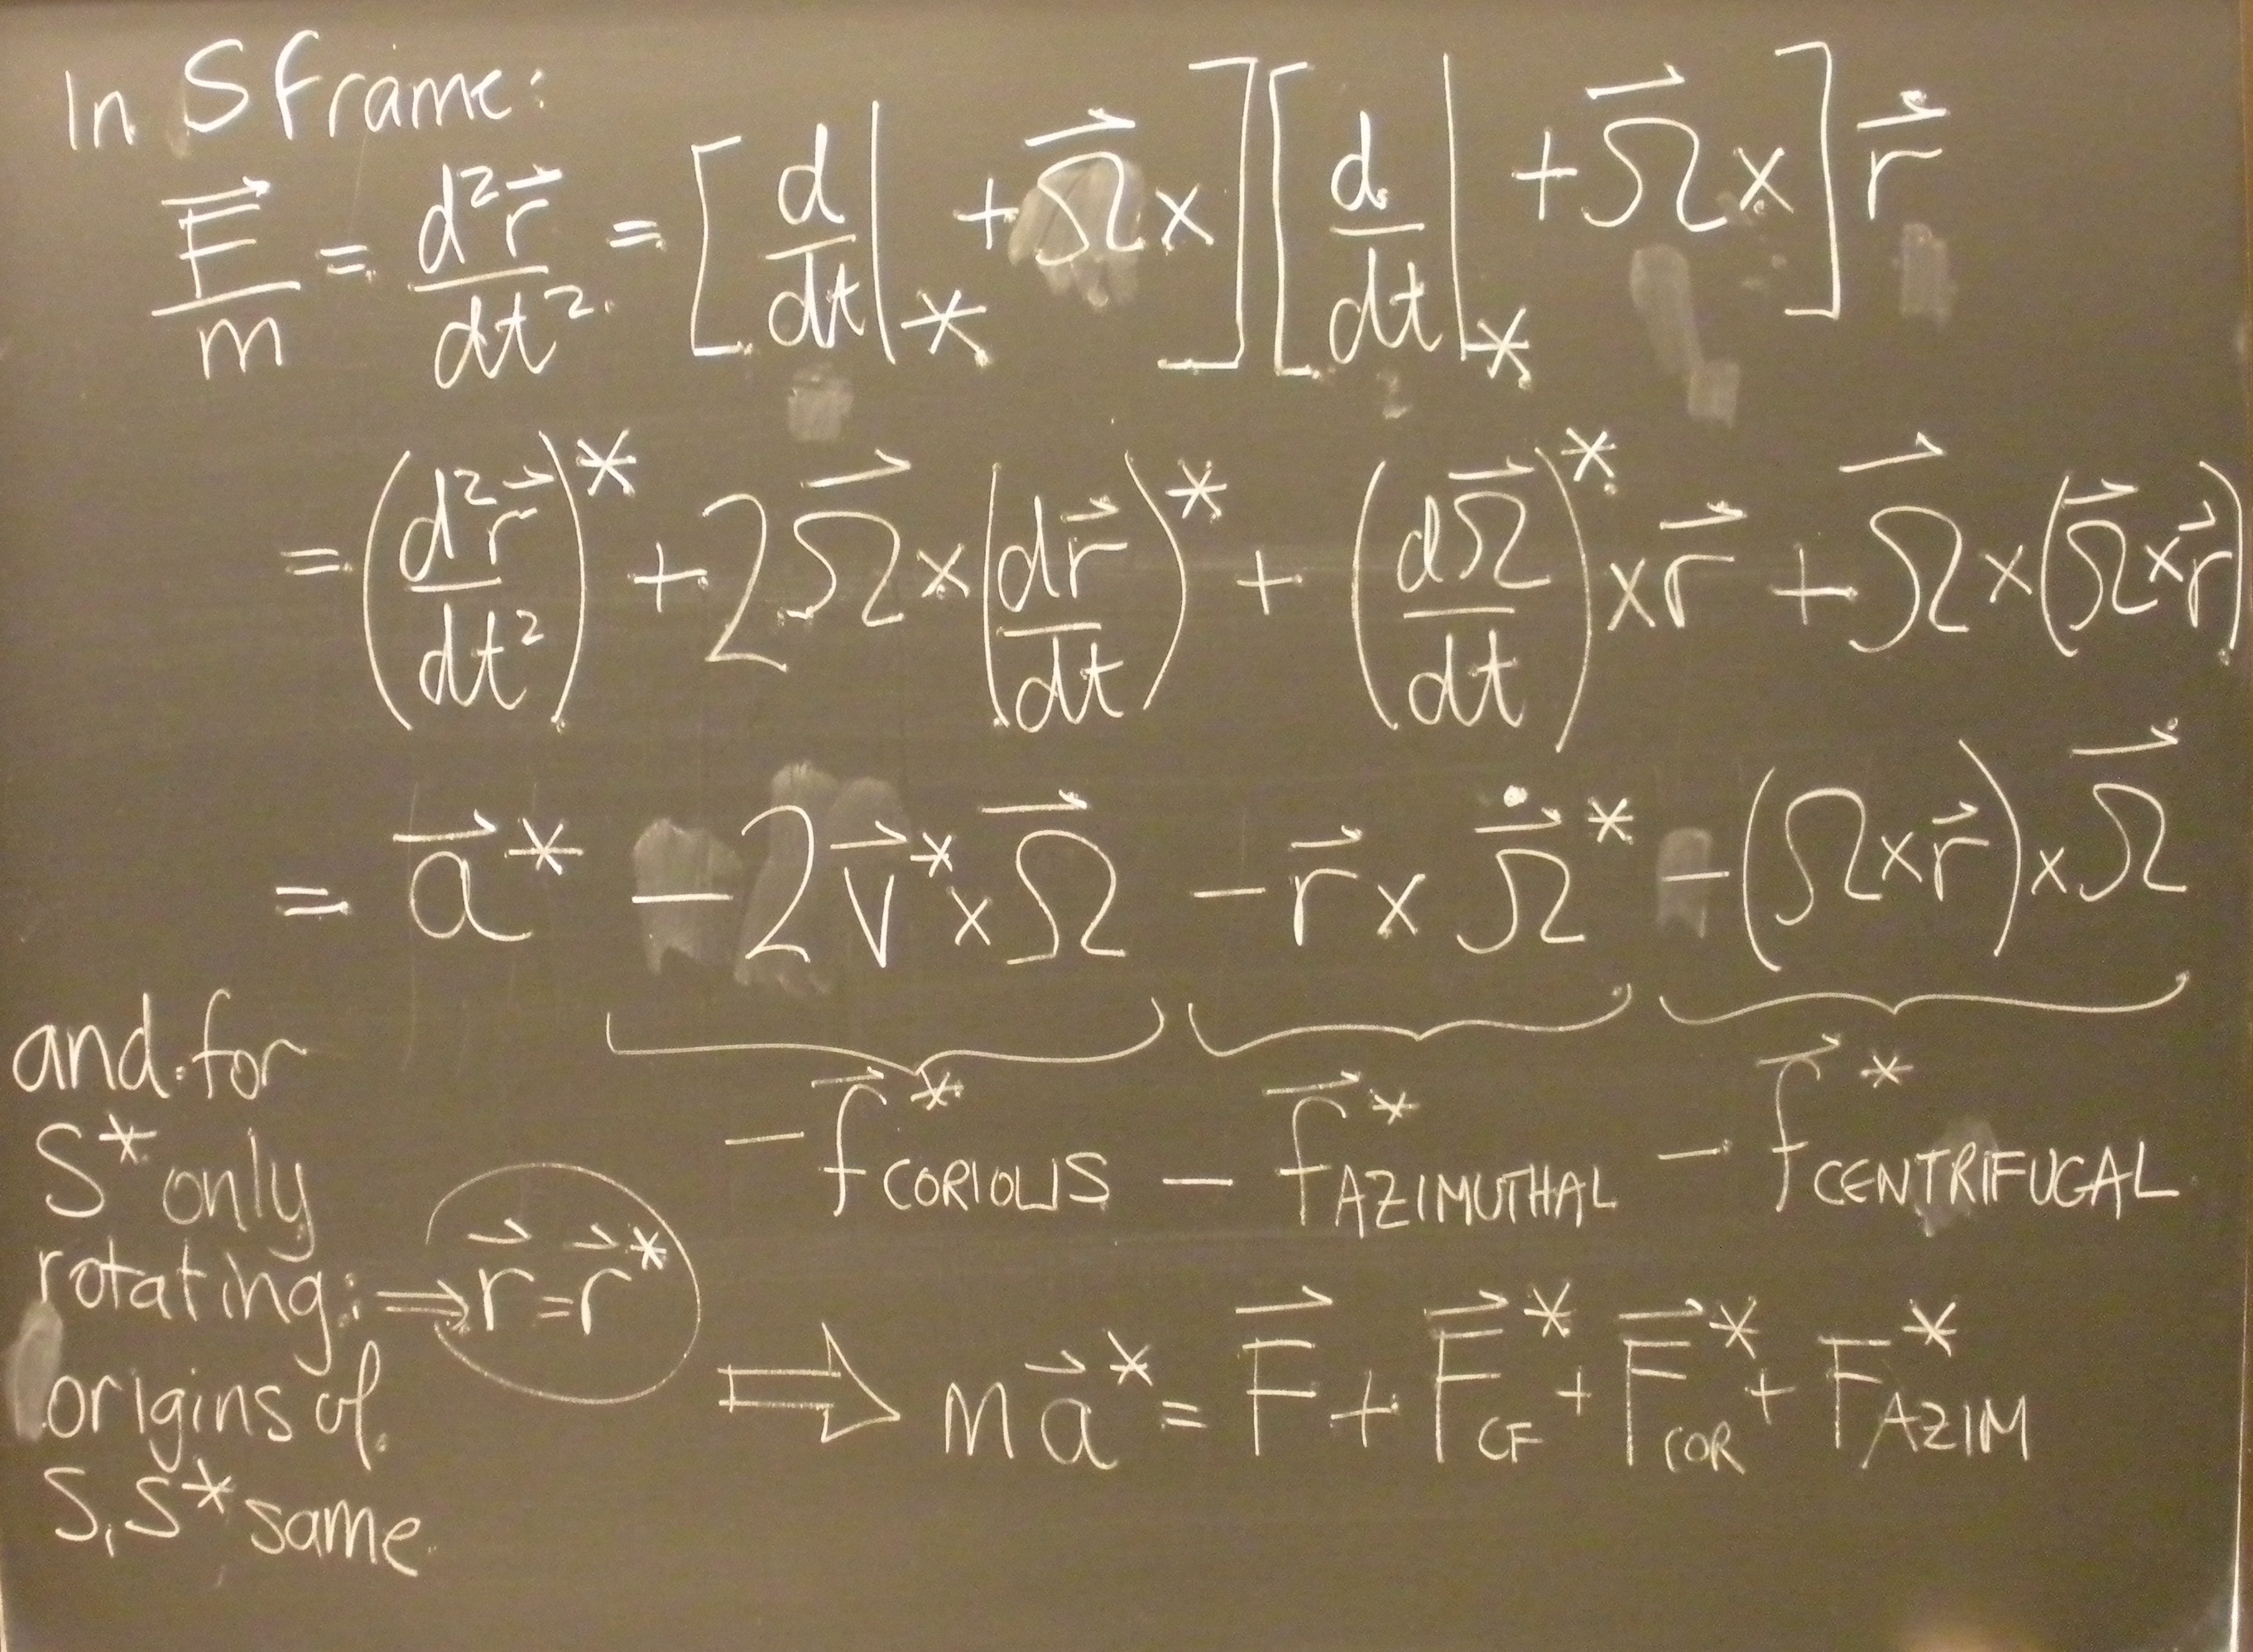 In S frame:
\frac{\vec{F}}{m} = \frac{d^2\vec{r}}{dt^2} = \left[\frac{d}{dt}\Big|_* + \vec{Ω}×\right]\left[\frac{d}{dt}\Big|_* + \vec{Ω}×\right]\vec{r}
= \left(\frac{d^2\vec{r}}{dt^2}\right)^* + 2\vec{Ω}×\left(\frac{d\vec{r}}{dt}\right)^* + \left(\frac{d\vec{Ω}}{dt}\right)^*×\vec{r} + \vec{Ω}×(\vec{Ω}×\vec{r})
= \vec{a}^* - 2\vec{v}^*×\vec{Ω} - \vec{r}×\dot{\vec{Ω}}^* - (Ω×\vec{r})×\vec{Ω}
- \vec{f}^*_{CORIOLIS} - \vec{f}^*_{AZIMUTHAL} - \vec{f}^*_{CENTRIFUGAL}
and for
S* only
rotating: ⇒ \vec{r} = \vec{r}^*
origins of
S, S* same
⇒ m\vec{a}^* = \vec{F} + \vec{F}^*_{CF} + \vec{F}^*_{COR} + F^*_{AZIM}